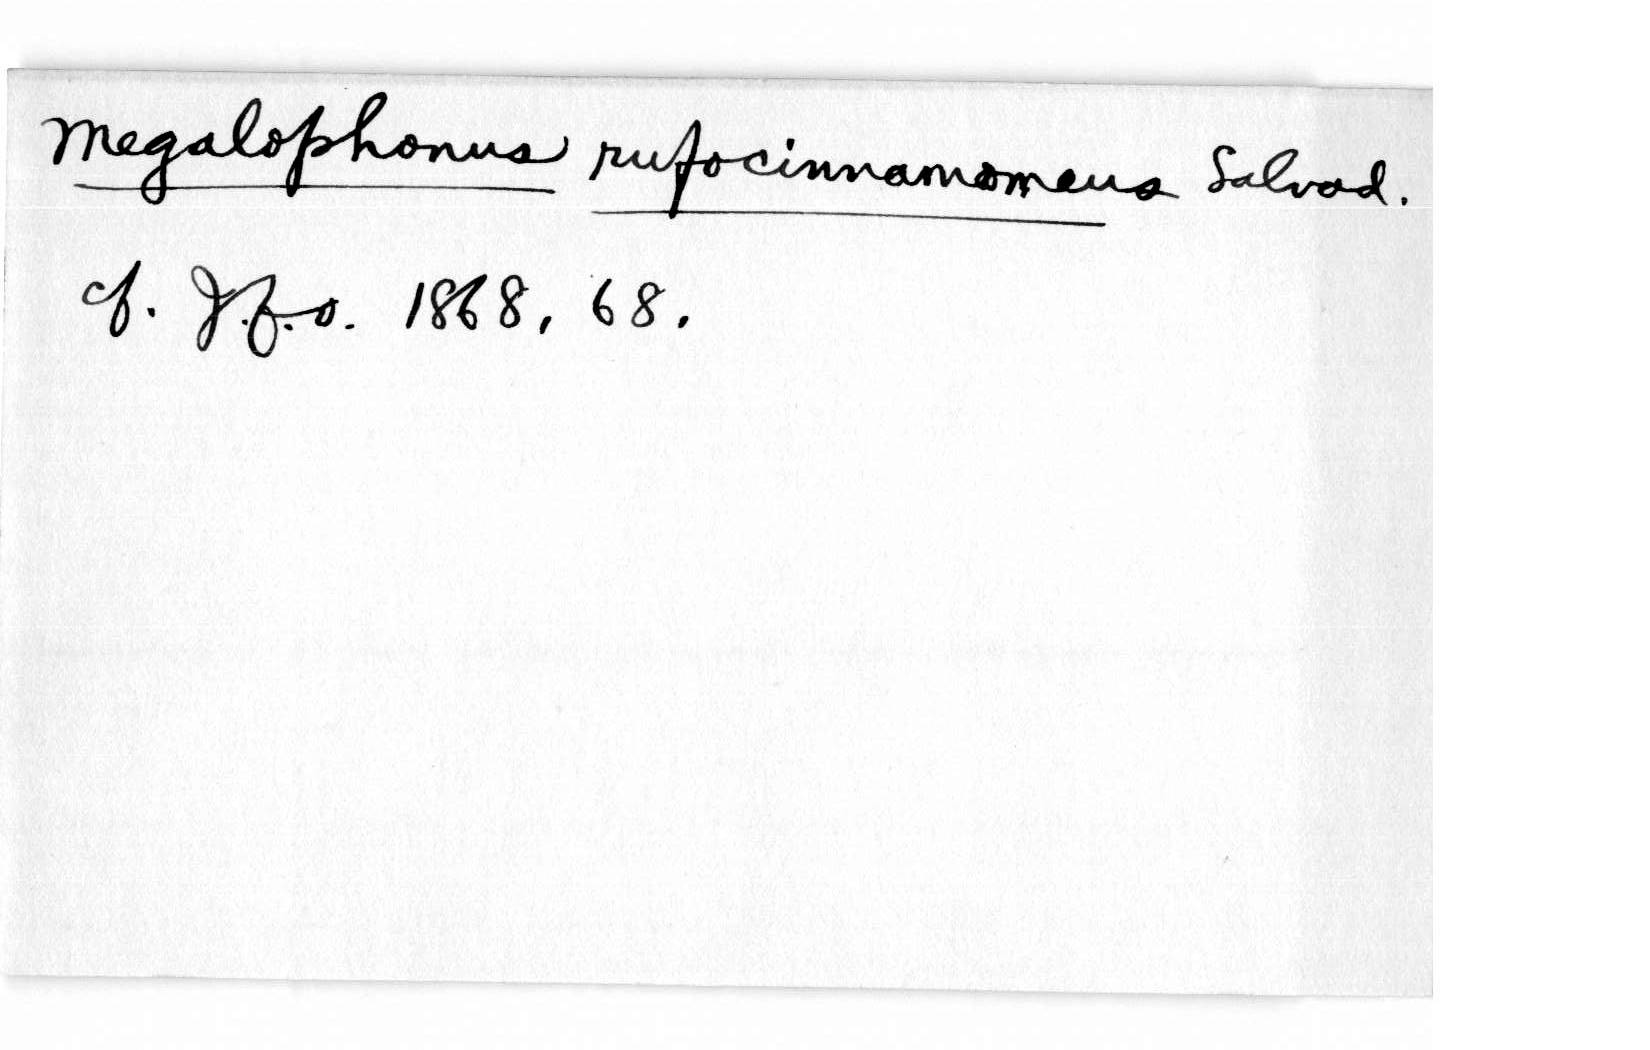 Megalophonus rufocinnamomeus Salvad.
cf. J.f.O. 1868, 68.